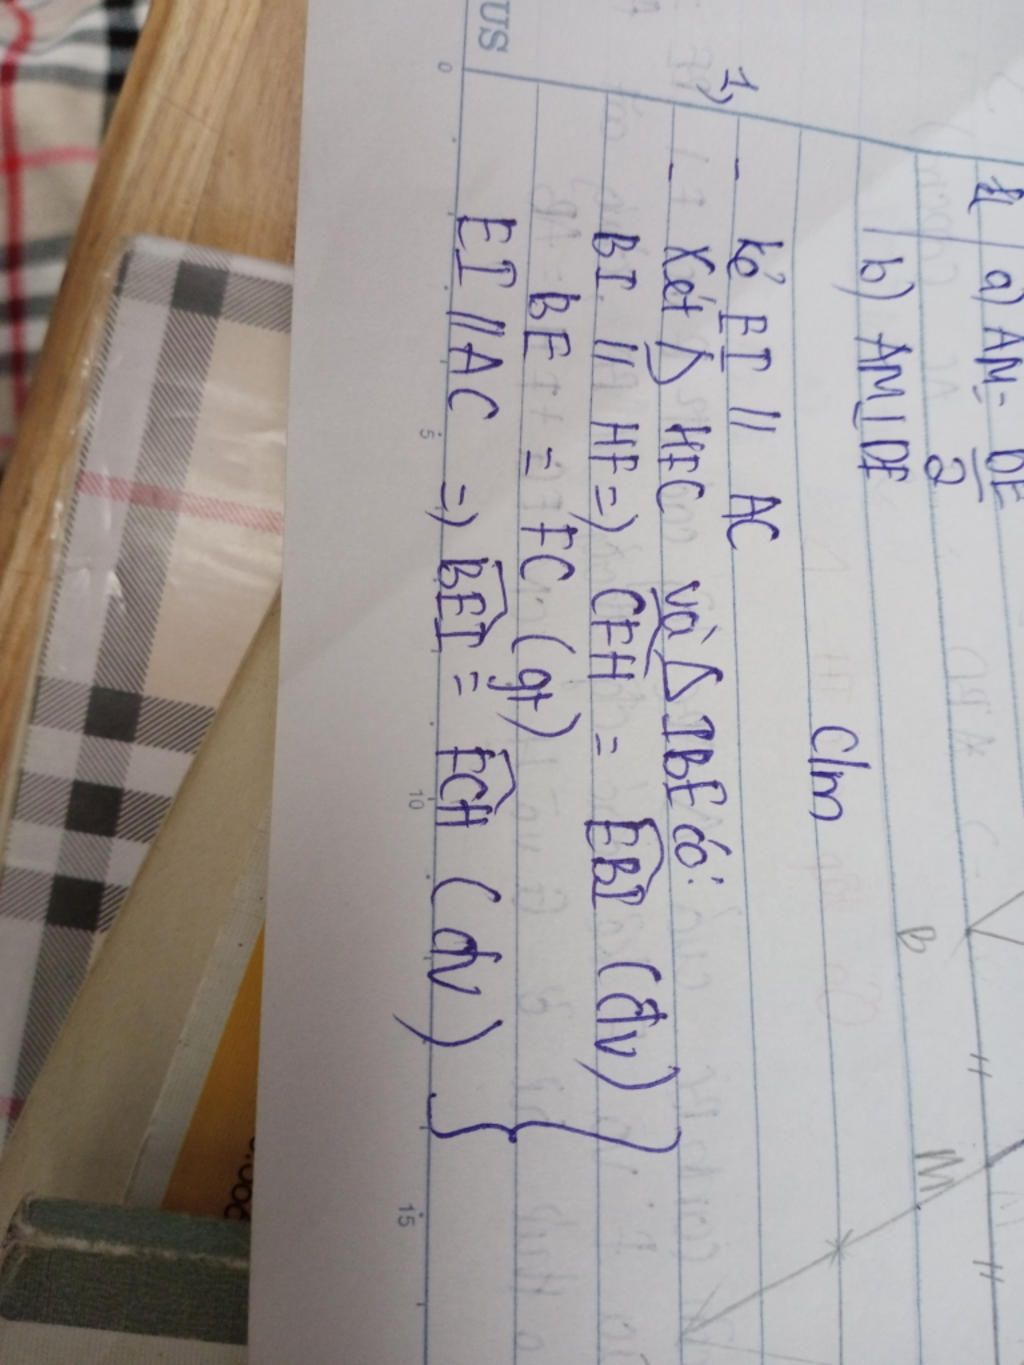 a) AM = DE
2
b) AM ⊥ DE
C/m
B
M
1,
- Kẻ EI // AC
- Xét Δ HFC và Δ IBE có:
BI // HF => CFH = EBI (đv)
BE = FC (gt)
EI // AC => BEI = FCH (đv)
US
0
5
10
15